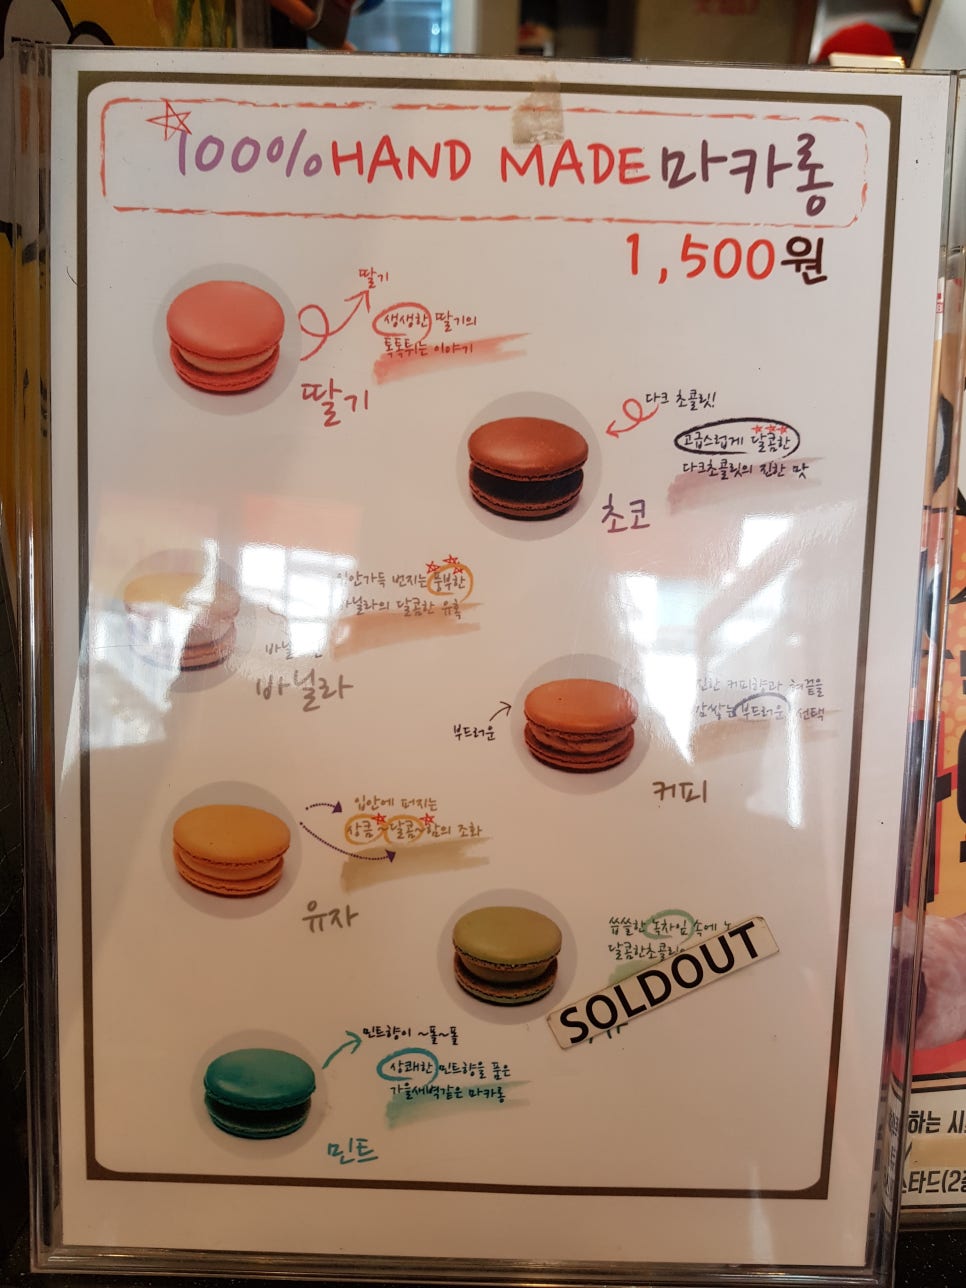 100% HAND MADE 마카롱
1,500원
딸기
생생한 딸기의
톡톡튀는 이야기
딸기
다크 초콜릿!
고급스럽게 달콤한
다크초콜릿의 진한 맛
초코
입안가득 번지는 풍부한
바닐라의 달콤한 유혹
바닐라
진한 커피향과 혀끝을
감쌀 부드러운 선택
부드러운
커피
입안에 퍼지는
상큼~달콤~함의 조화
유자
씁쓸한 녹차잎 속에
SOLDOUT
민트향이 ~폴~폴
상쾌한 민트향을 품은
가을새벽같은 마카롱
민트
하는
스타드(2종